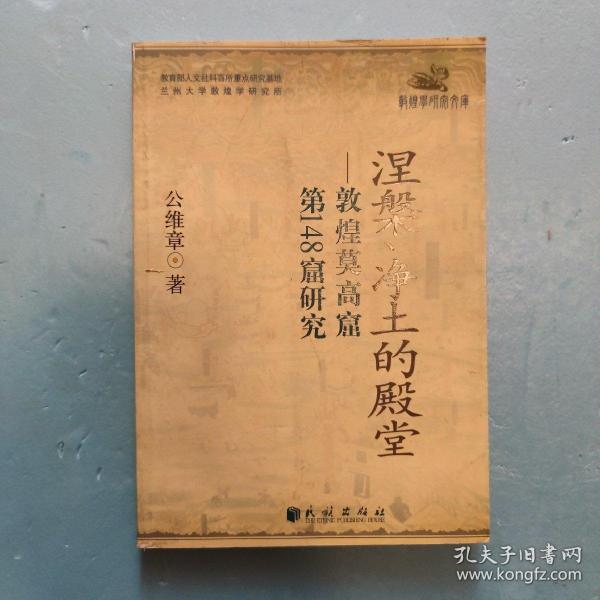 教育部人文社科百所重点研究基地
兰州大学敦煌学研究所
敦煌學研究文庫
涅槃、净土的殿堂
—敦煌莫高窟
第148窟研究
公维章⊙著
民族出版社
THE ETHNIC PUBLISHING HOUSE
孔夫子旧书网
www.kongfz.com